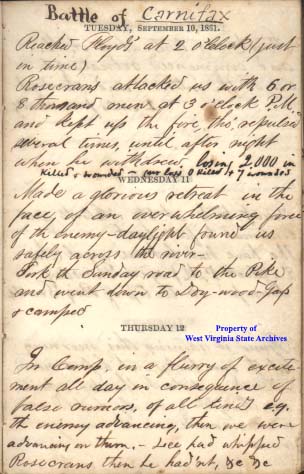 Battle of Carnifax
TUESDAY, SEPTEMBER 10, 1861.
Reached Floyd's at 2 O'clock (just
in time)
Rosecrans attacked us with 6 or
8 thousand men at 3 o'clock P.M.
and kept up the fire, tho' repulsed
several times, until after night
when he withdrew losing 2,000 in
killed & wounded – our loss 0 killed & 7 wounded
WEDNESDAY 11
Made a glorious retreat in the
face of an overwhelming force
of the enemy – daylight found us
safely across the river –
Took the Sunday road to the Pike
and went down to Dog-wood-Gap
& camped
THURSDAY 12
Property of
West Virginia State Archives
In Camp, in a flurry of excite
ment all day in consequence of
false rumors, of all kinds e.g.
the enemy advancing, then we were
advancing on them. – Lee had whipped
Rosecrans then he hadn't, &c &c